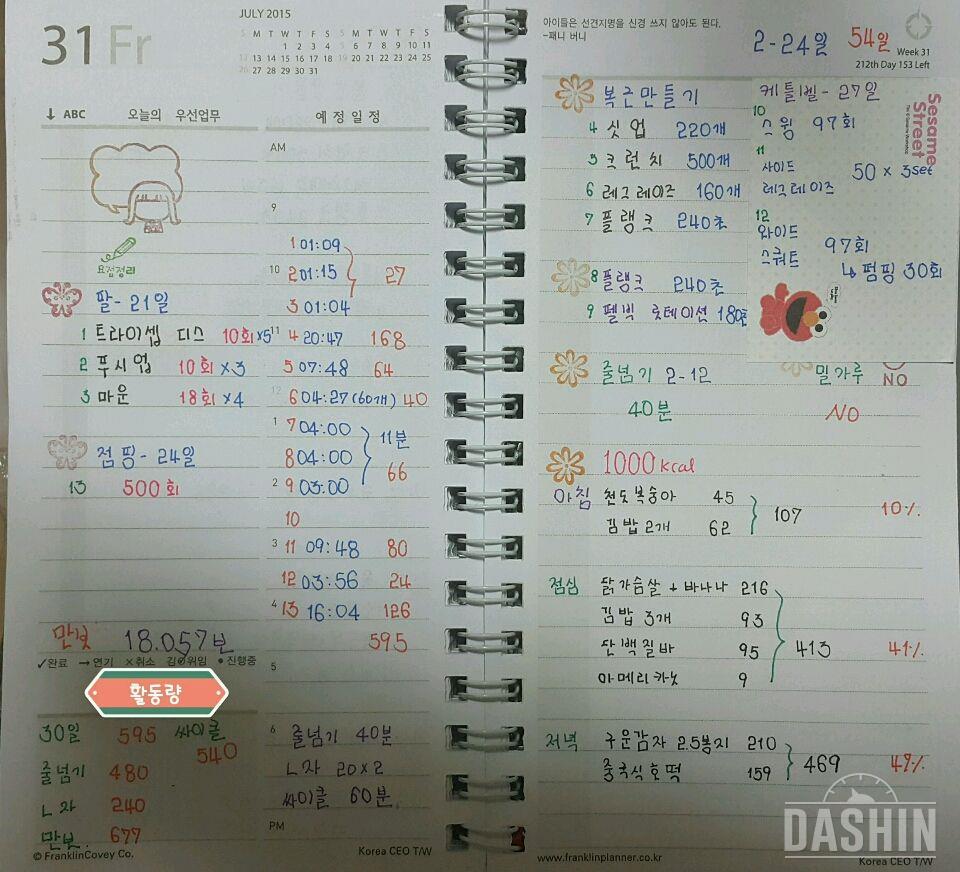 31 Fr
JULY 2015
S M T W T F S S M T W T F S
1 2 3 4 5 6 7 8 9 10 11
12 13 14 15 16 17 18 19 20 21 22 23 24 25
26 27 28 29 30 31
↓ ABC 오늘의 우선업무
요점정리
팔-21일
1 트라이셉 디스 10회×5
2 푸시업 10회×3
3 마운 18회×4
점핑-24일
13 500회
만보 18.057보
✓완료 →연기 ×취소 위임 •진행중
활동량
30일 595 싸이클 540
줄넘기 480
L자 240
만보. 677
© FranklinCovey Co.
예정일정
AM
9
1 01:09
10 2 01:15 27
3 01:04
11 4 20:47 168
5 07:48 64
12 6 04:27 (60개) 40
1 7 04:00 11분
8 04:00 66
2 9 03:00
10
3 11 09:48 80
12 03:56 24
4 13 16:04 126
595
5
6 줄넘기 40분
L자 20×2
싸이클 60분
PM
Korea CEO T/W
아이들은 선견지명을 신경 쓰지 않아도 된다.
-패니 버니
2-24일 54일
Week 31
212th Day 153 Left
복근만들기
4 싯업 220개
5 크런치 500개
6 레그레이즈 160개
7 플랭크 240초
8 플랭크 240초
9 펠빅 로테이션 180초
케틀벨-27일
10
스윙 97회
11
사이드
레그레이즈 50×3set
12
와이드
스쿼트 97회
↳ 펌핑 30회
Sesame Street
줄넘기 2-12
40분
밀가루 NO
NO
1000 kcal
아침 천도복숭아 45
김밥 2개 62
107 10%
점심 닭가슴살 + 바나나 216
김밥 3개 93
단백질바 95
아메리카노 9
413 41%
저녁 구운감자 2.5봉지 210
중국식호떡 159
469 49%
DASHIN
www.franklinplanner.co.kr
Korea CEO T/W